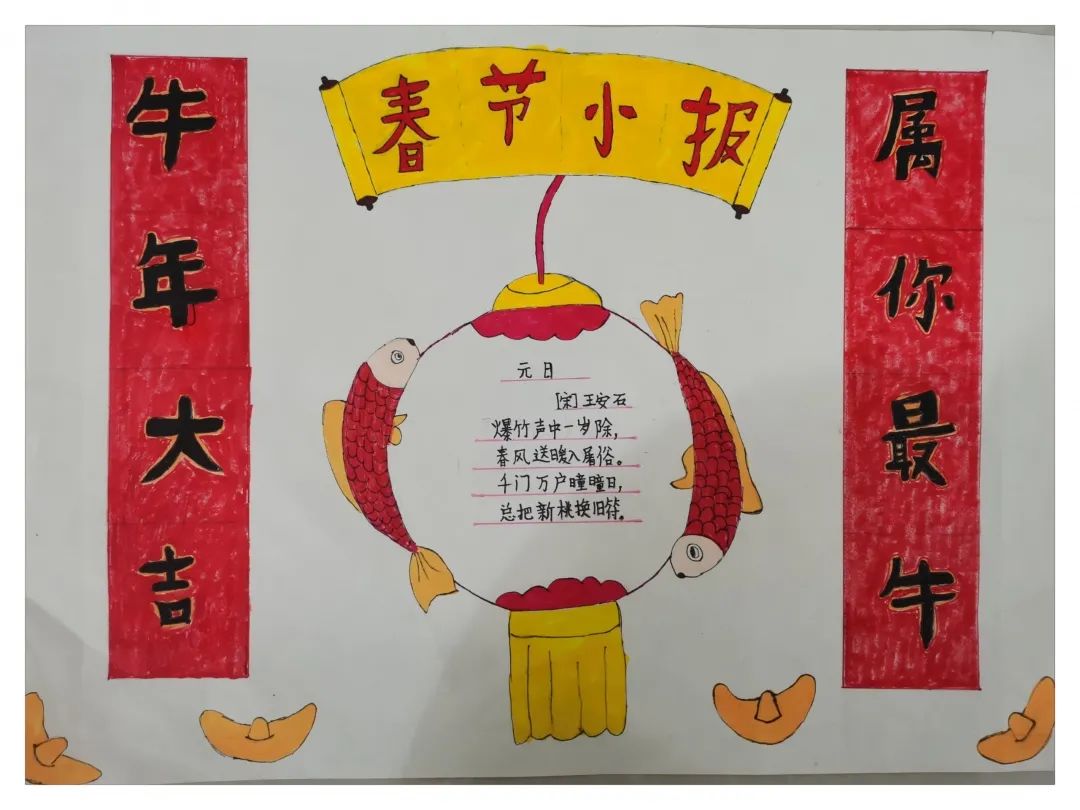 春节小报
牛年大吉
属你最牛
元日
[宋]王安石
爆竹声中一岁除,
春风送暖入屠俗。
千门万户曈曈日,
总把新桃换旧符。